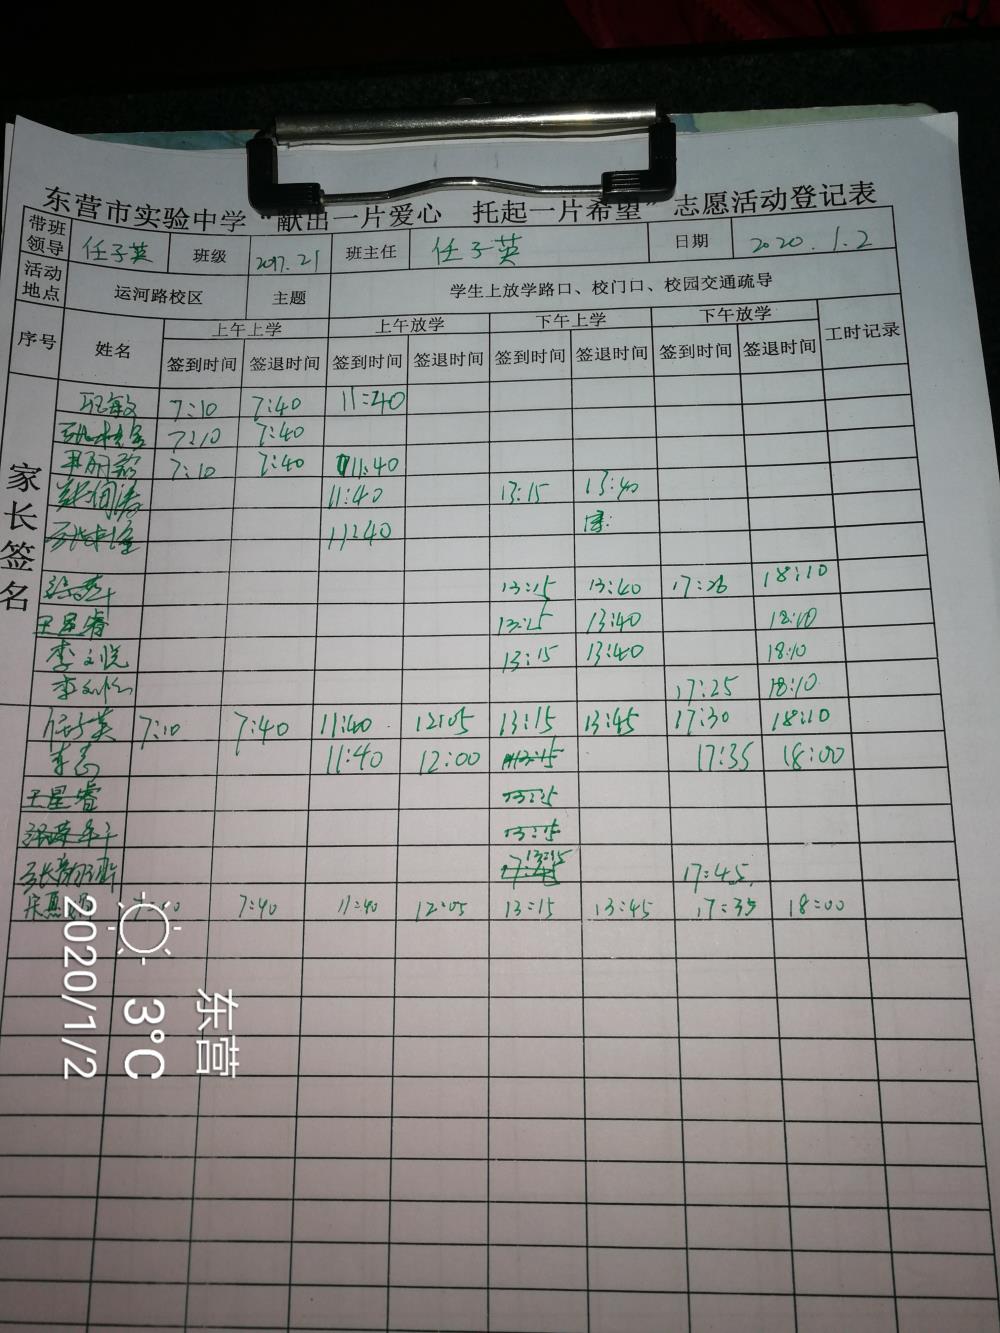 东营市实验中学“献出一片爱心 托起一片希望”志愿活动登记表
带班领导 任子英 班级 2017.21 班主任 任子英 日期 2020.1.2
活动地点 运河路校区 主题 学生上放学路口、校门口、校园交通疏导
序号 姓名 上午上学 上午放学 下午上学 下午放学 工时记录
签到时间 签退时间 签到时间 签退时间 签到时间 签退时间 签到时间 签退时间
家长签名
7:10 7:40 11:40
7:10 7:40
7:10 7:40 11:40
11:40 13:15 13:40
11:40
13:15 13:40 17:26 18:10
王星睿 13:15 13:40 18:10
李文悦 13:15 13:40 18:10
17:25 18:10
任子英 7:10 7:40 11:40 12:05 13:15 13:45 17:30 18:10
11:40 12:00 13:15 17:35 18:00
王星睿 13:15
13:15
13:15 17:45
7:40 11:40 12:05 13:15 13:45 17:35 18:00
东营
3°C
2020/1/2